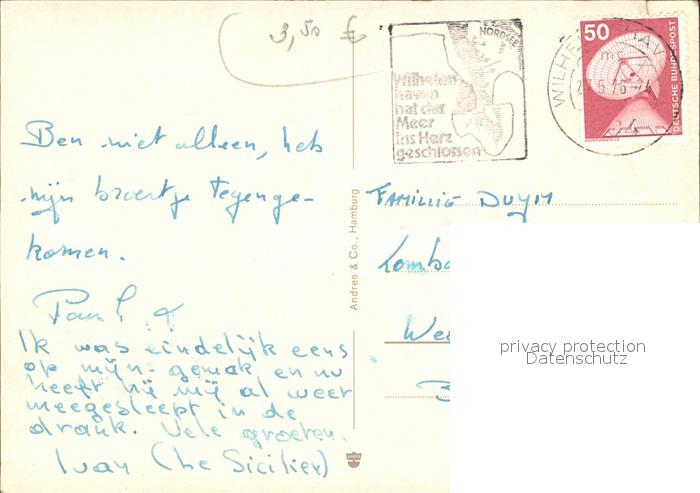 3,50 €
NORDSEE
Wilhelms-
haven
hat das
Meer
ins Herz
geschlossen
50
DEUTSCHE BUNDESPOST
Ben niet alleen, heb
mijn broertje tegenge-
komen.
Paul &
Ik was eindelijk eens
op mijn gemak en nu
heeft hij mij al weer
meegesleept in de
drank. Vele groeten.
Ivan (Le Sicilien)
Andres & Co., Hamburg
FAMILLIE DUYM
privacy protection
Datenschutz